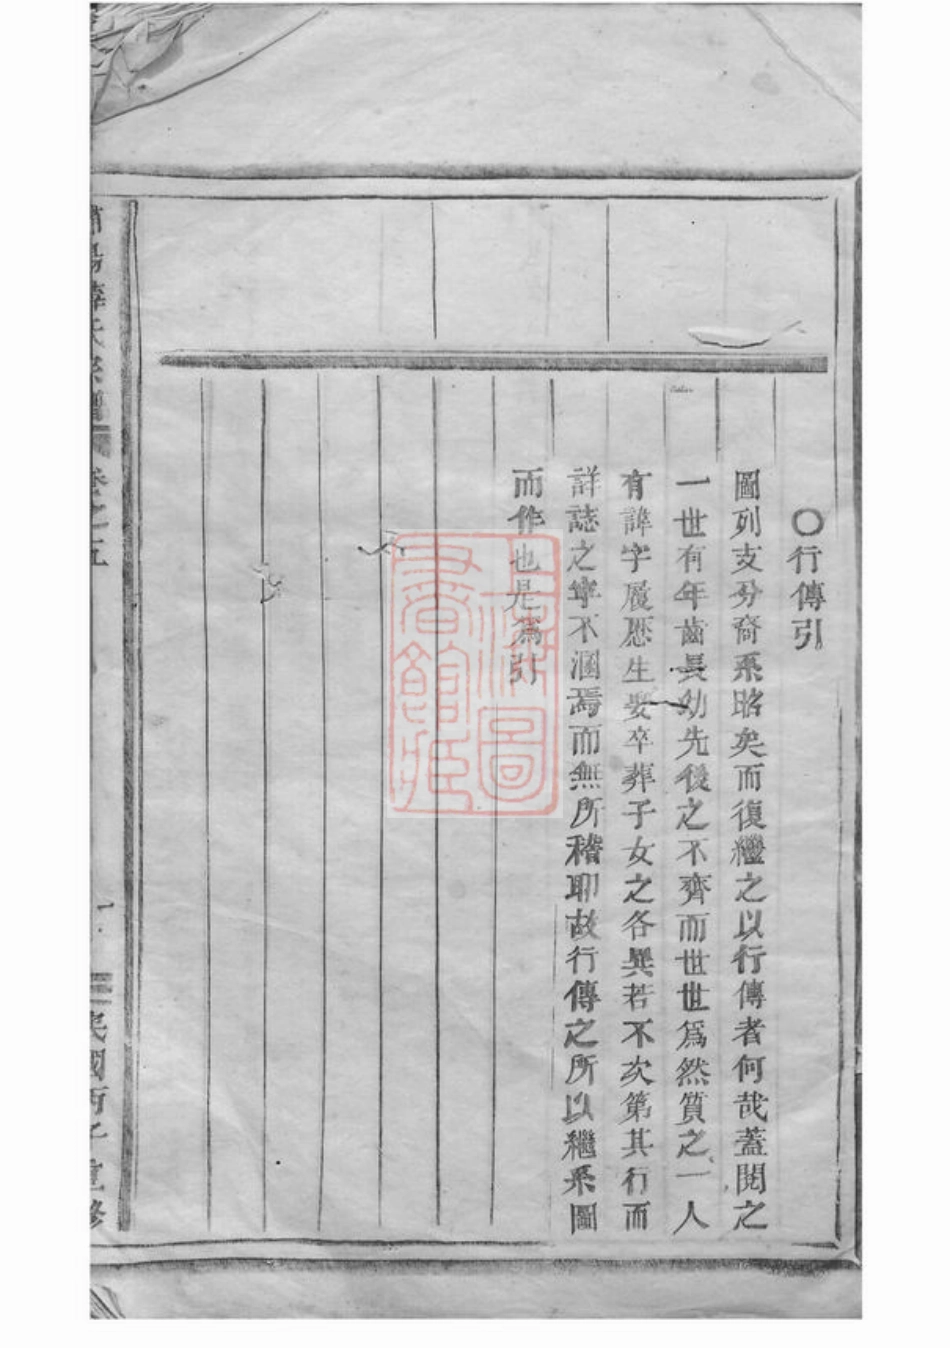 ○行傳引
圖列支分裔系昭矣而復繼之以行傳者何哉蓋閱之
一世有年齒長幼先後之不齊而世世爲然質之一人
有諱字履歷生娶卒葬子女之各異若不次第其行而
詳誌之寧不溷焉而無所稽耶故行傳之所以繼系圖
而作也是爲引
上海圖書館藏
氏宗譜
卷之五
一
民國丙子重修